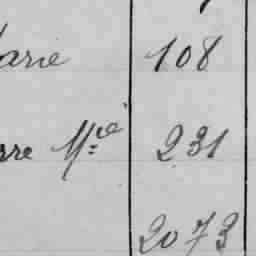 arie 108
rre Mce 231
2073